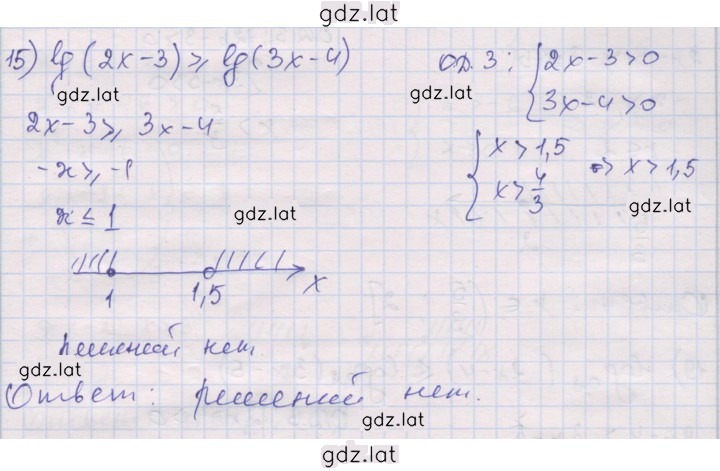 gdz.lat
15) lg(2x-3) ⩾ lg(3x-4) ОДЗ: { 2x-3>0
gdz.lat gdz.lat
3x-4>0
2x-3 ⩾ 3x-4
-x ⩾ -1
{ x > 1,5
x > 4/3 => x > 1,5
x ≤ 1 gdz.lat gdz.lat
1 1,5 x
решений нет
gdz.lat
Ответ: решений нет.
gdz.lat
gdz.lat